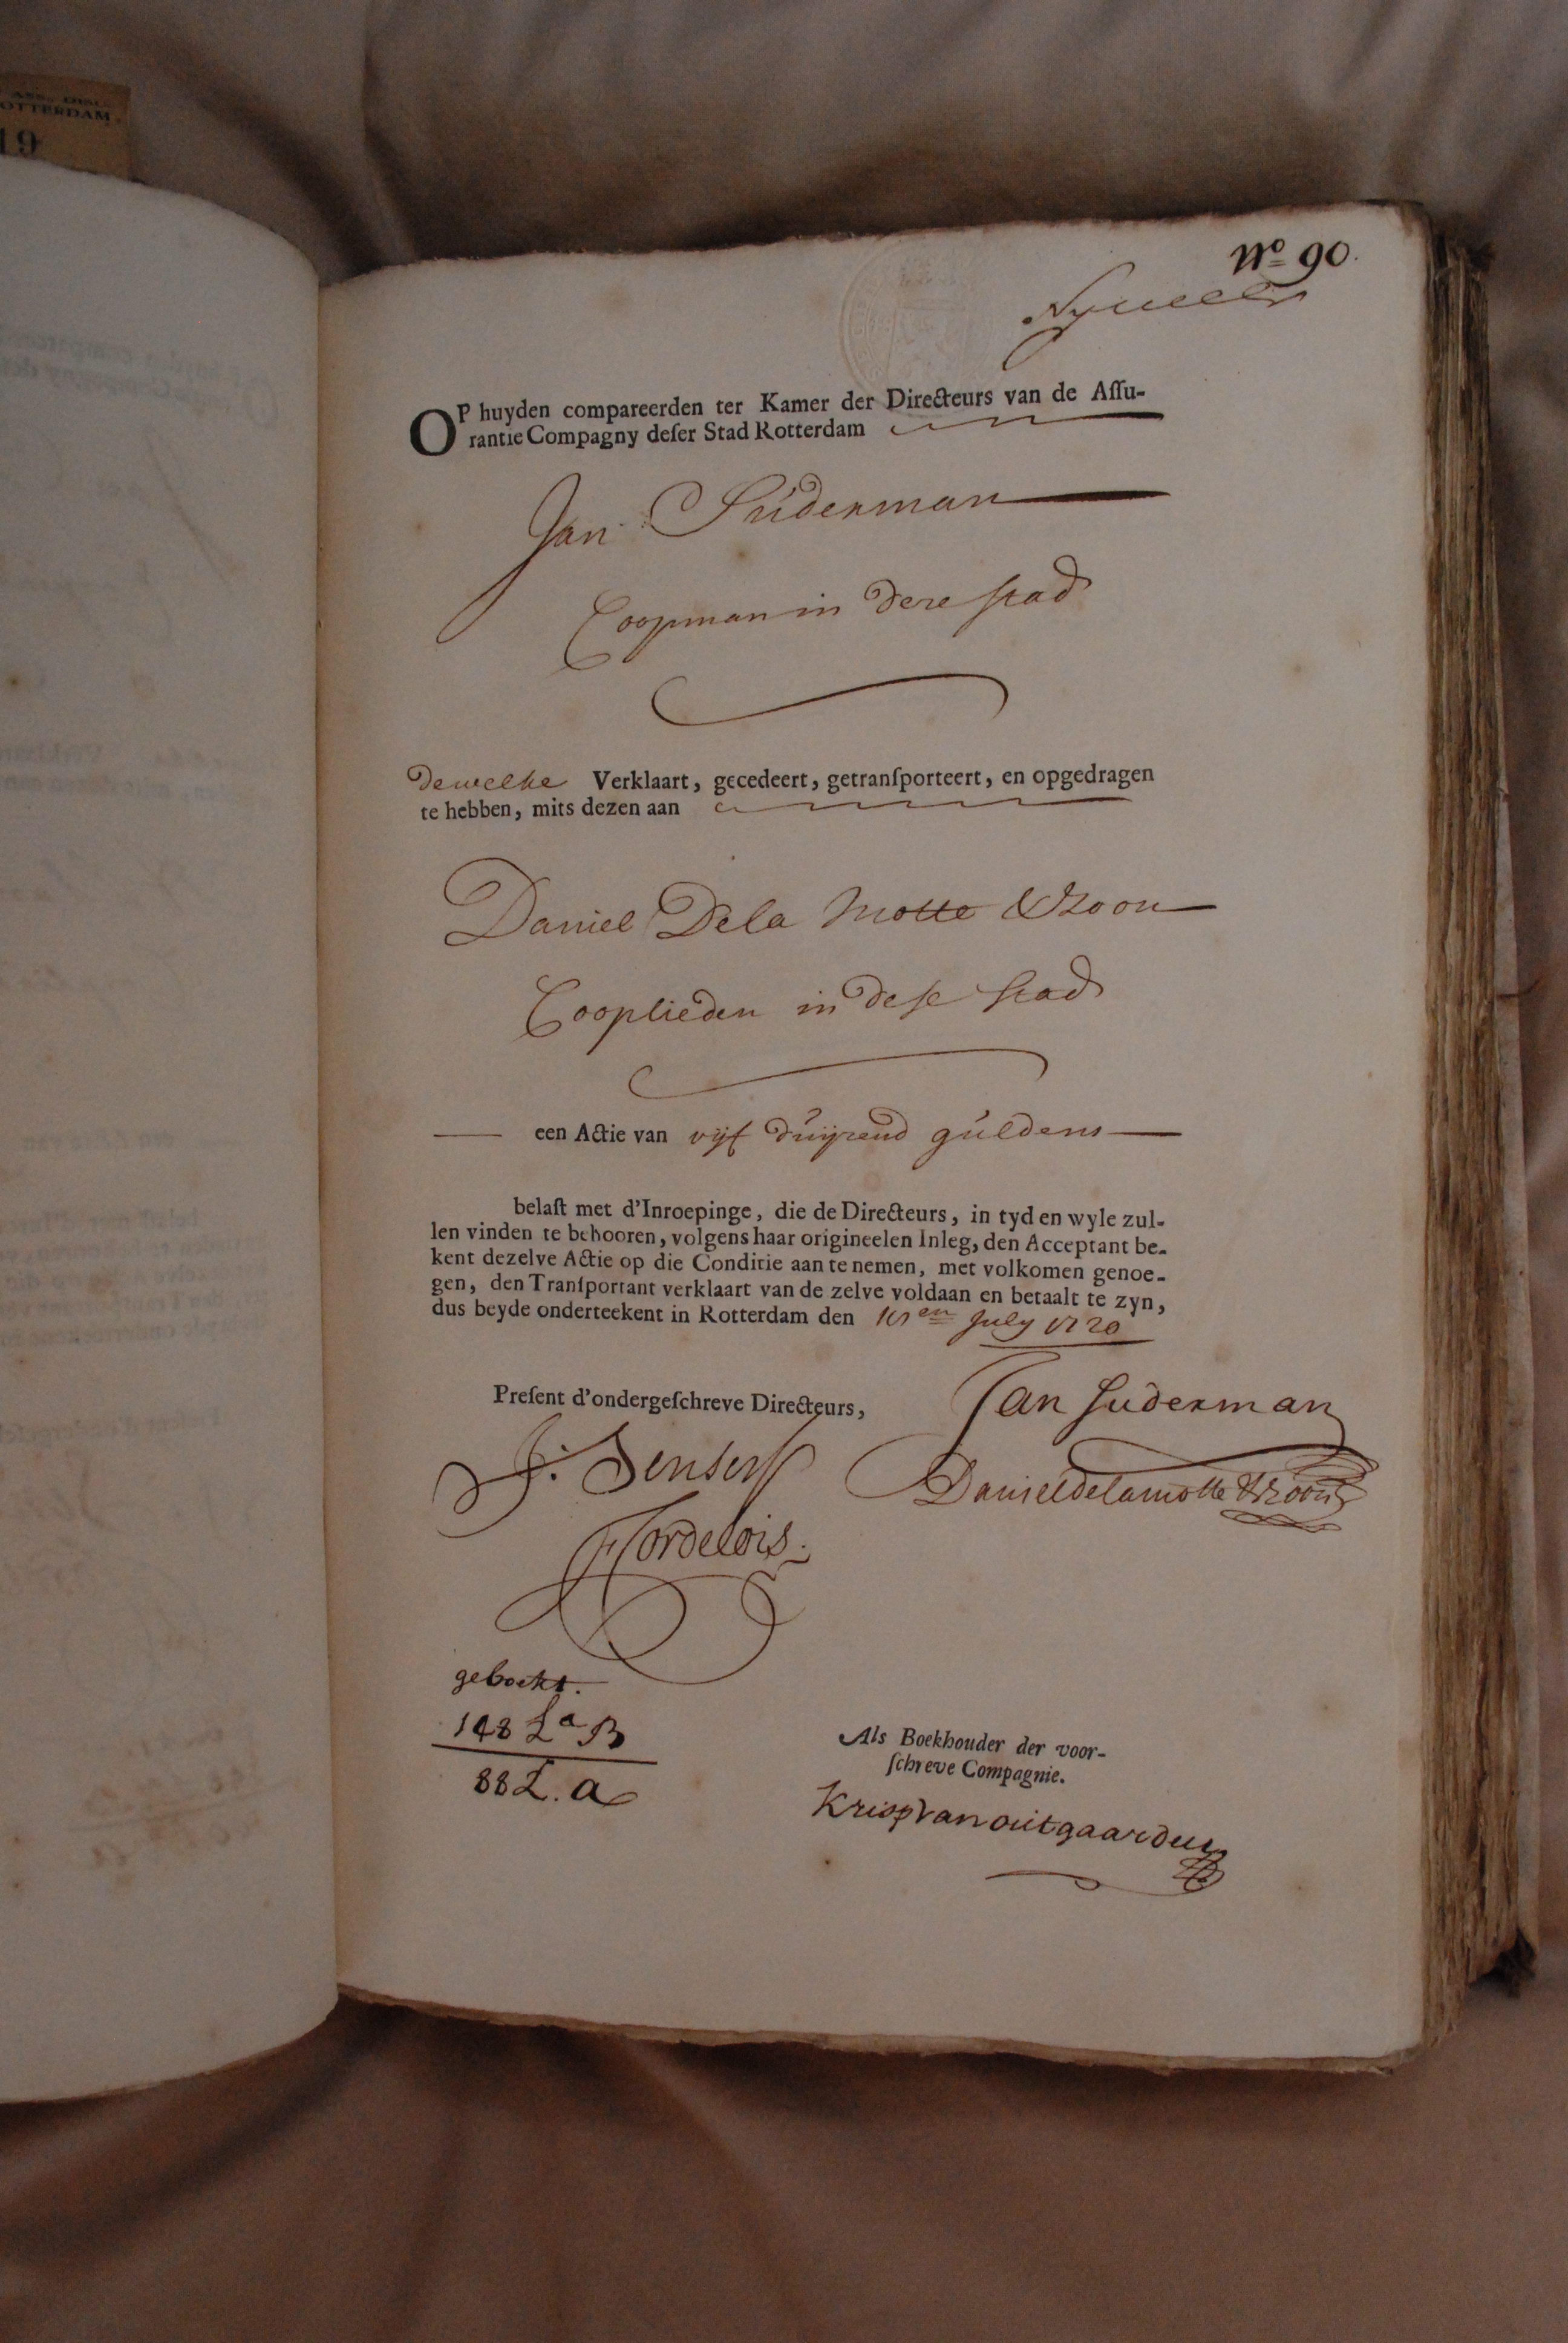 OTTERDAM.
19
No 90.
OP huyden compareerden ter Kamer der Directeurs van de Assu-
rantie Compagny deser Stad Rotterdam
Jan Suderman
Coopman in deze stad
dewelke Verklaart, gecedeert, getransporteert, en opgedragen
te hebben, mits dezen aan
Daniel De la Motte & Zoon
Cooplieden in dese stad
een Actie van vijf duijzend guldens
belast met d'Inroepinge, die de Directeurs, in tyd en wyle zul-
len vinden te behooren, volgens haar origineelen Inleg, den Acceptant be-
kent dezelve Actie op die Conditie aan te nemen, met volkomen genoe-
gen, den Transportant verklaart van de zelve voldaan en betaalt te zyn,
dus beyde onderteekent in Rotterdam den July 1720
Present d'ondergeschreve Directeurs,
Jan Suderman
Daniel de la motte & Zoon
geboekt.
148 La B
88 L. a
Als Boekhouder der voor-
schreve Compagnie.
Krisp van outgaarden